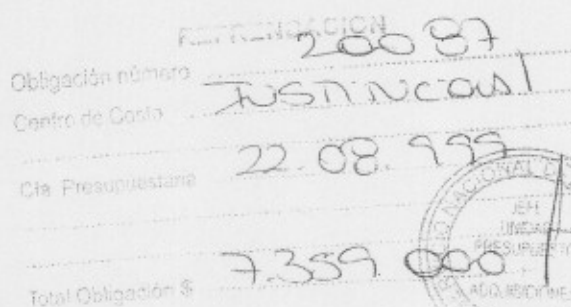 REFRENDACION
Obligación número 20087
Centro de Costo
Cta. Presupuestaria 22.08.999
Total Obligación $ 7.359.000
NACIONAL
JEFE
UNIDAD
PRESUPUESTO
ADQUISICIONES